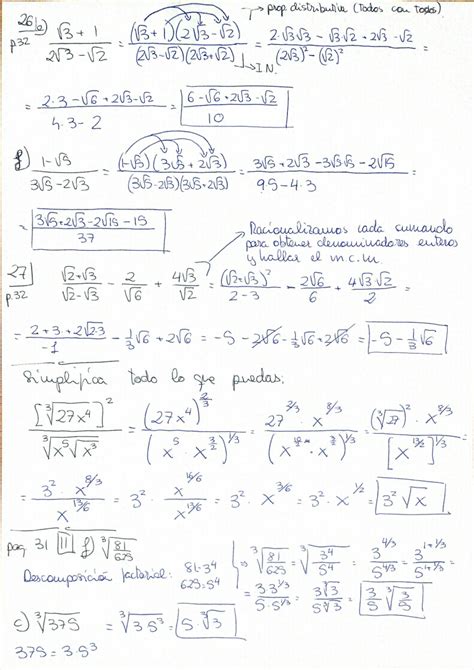 → prop. distributiva (Todos con Todos).
26 e) p.32 (√3 + 1)/(2√3 - √2) = (√3 + 1)(2√3 - √2)/((2√3 - √2)(2√3 + √2)) = (2·√3·√3 - √3·√2 + 2√3 - √2)/((2√3)² - (√2)²) =
→ I.N.
= (2·3 - √6 + 2√3 - √2)/(4·3 - 2) = (6 - √6 + 2√3 - √2)/10
f) (1 - √5)/(3√5 - 2√3) = (1 - √5)(3√5 + 2√3)/((3√5 - 2√3)(3√5 + 2√3)) = (3√5 + 2√3 - 3√5√5 - 2√15)/(9·5 - 4·3)
= (3√5 + 2√3 - 2√15 - 15)/37
Racionalizamos cada sumando
para obtener denominadores enteros
y hallar el m.c.m.
27 p.32 (√2 + √3)/(√2 - √3) - 2/√6 + 4√3/√2 = (√2 + √3)²/(2 - 3) - 2√6/6 + 4√3·√2/2 =
= (2 + 3 + 2√2·3)/-1 - 1/3√6 + 2√6 = -5 - 2√6 - 1/3√6 + 2√6 = -5 - 1/3√6
Simplifica todo lo que puedas:
[∛27x⁴]²/∛(x⁵√x³) = (27x⁴)^(2/3)/(x⁵·x^(3/2))^(1/3) = 27^(2/3)·x^(8/3)/(x^(10/2)·x^(3/2))^(1/3) = (∛27)²·x^(8/3)/[x^(13/2)]^(1/3) =
= 3²·x^(8/3)/x^(13/6) = 3²·x^(16/6)/x^(13/6) = 3²·x^(3/6) = 3²·x^(1/2) = 3²√x
pag 31 11 f) ∛(81/625)
Descomposición factorial: 81=3⁴ 625=5⁴
⇒ ∛(81/625) = ∛(3⁴/5⁴) = 3^(4/3)/5^(4/3) = 3^(1+1/3)/5^(1+1/3) =
= 3·3^(1/3)/5·5^(1/3) = 3∛3/5∛5 = 3/5 ∛(3/5)
c) ∛375 = ∛(3·5³) = 5·∛3
375 = 3·5³